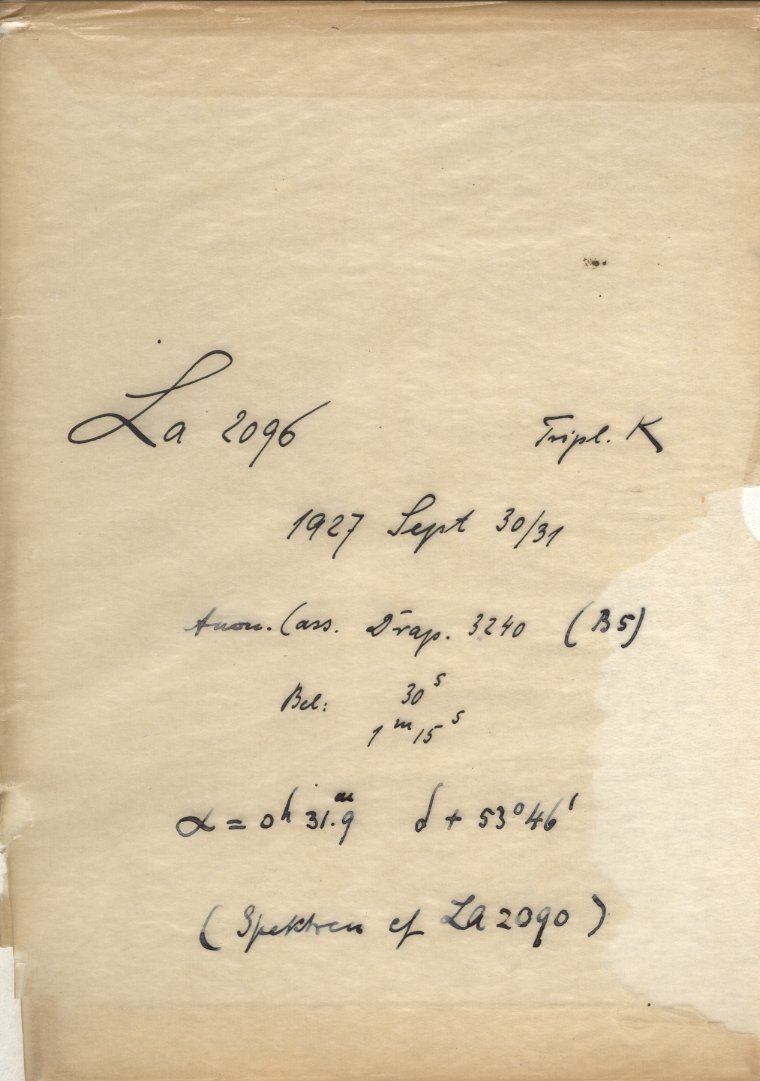 La 2096 Tripl. K
1927 Sept 30/31
Anon. Cass. Drap. 3240 (B5)
Bel: 30ˢ
1ᵐ15ˢ
α = 0ʰ 31.ᵐ9 δ + 53°46'
(Spektren cf La 2090)